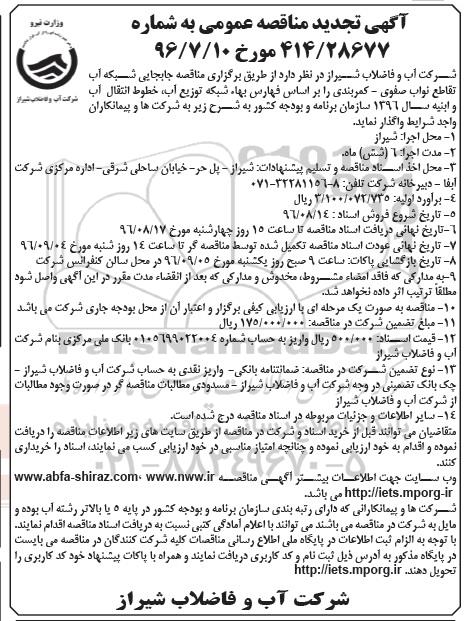 آگهی تجدید مناقصه عمومی به شماره
۴۱۴/۲۸۶۷۷ مورخ ۹۶/۷/۱۰
وزارت نیرو
شرکت آب و فاضلاب شیراز
شـــرکت آب و فاضلاب شـــیراز در نظر دارد از طریق برگزاری مناقصه جابجایی شـــبکه آب
تقاطع نواب صفوی - کمربندی را بر اساس فهارس بهاء شبکه توزیع آب، خطوط انتقال آب
و ابنیه ســـال ۱۳۹٦ سازمان برنامه و بودجه کشور به شـــرح زیر به شرکت ها و پیمانکاران
واجد شرایط واگذار نماید.
۱- محل اجرا: شیراز
۲- مدت اجرا: ٦ (شش) ماه.
۳- محل اخذ اســـناد مناقصه و تسلیم پیشنهادات: شیراز - پل حر- خیابان ساحلی شرقی- اداره مرکزی شرکت
آبفا - دبیرخانه شرکت تلفن: ۸-۳۲۲۸۱۱۵٦-۰۷۱
۴- برآورد اولیه: ۳/۱۰۰/۰۷۲/۷۳۵ ریال
۵- تاریخ شروع فروش اسناد: ۹٦/۰۸/۱۴
٦-تاریخ نهائی دریافت اسناد مناقصه تا ساعت ۱۵ روز چهارشنبه مورخ ۹٦/۰۸/۱۷
۷- تاریخ نهائی عودت اسناد مناقصه تکمیل شده توسط مناقصه گر تا ساعت ۱۴ روز شنبه مورخ ۹٦/۰۹/۰۴
۸- تاریخ بازگشایی پاکات: ساعت ۹ صبح روز یکشنبه مورخ ۹٦/۰۹/۰۵ در محل سالن کنفرانس شرکت
۹-به مدارکی که فاقد امضاء مشـــروط، مخدوش و مدارکی که بعد از انقضاء مدت مقرر در این آگهی واصل شود
مطلقاً ترتیب اثر داده نخواهد شد.
۱۰- مناقصه به صورت یک مرحله ای با ارزیابی کیفی برگزار و اعتبار آن از محل بودجه جاری شرکت می باشد
۱۱- مبلغ تضمین شرکت در مناقصه: ۱۷۵/۰۰۰/۰۰۰ ریال
۱۲- قیمت اســـناد: ۵۰۰/۰۰۰ ریال واریز به حساب شماره ۰۱۰۵٦۹۹۰۲۲۰۰۴ بانک ملی مرکزی بنام شرکت
آب و فاضلاب شیراز
۱۳- نوع تضمین شـــرکت در مناقصه: ضمانتنامه بانکی- واریز نقدی به حساب شرکت آب و فاضلاب شیراز -
چک بانک تضمینی در وجه شرکت آب و فاضلاب شیراز - مسدودی مطالبات مناقصه گر در صورت وجود مطالبات
از شرکت آب و فاضلاب شیراز
۱۴- سایر اطلاعات و جزئیات مربوطه در اسناد مناقصه درج شده است.
متقاضیان می توانند قبل از خرید اسناد و شرکت در مناقصه از طریق سایت های زیر اطلاعات مناقصه را دریافت
نموده و اقدام به خود ارزیابی نموده و چنانچه امتیاز مناسبی در خود ارزیابی کسب می نمایند، اسناد را خریداری
کنند.
وب ســایت جهت اطلاعــات بیشــتر آگهــی مناقصــه www.abfa-shiraz.com، www.nww.ir
http://iets.mporg-ir می باشد.
شـــرکت ها و پیمانکارانی که دارای رتبه بندی سازمان برنامه و بودجه کشور در پایه ۵ یا بالاتر رشته آب بوده و
مایل به شرکت در مناقصه می باشند می توانند با اعلام آمادگی کتبی نسبت به دریافت اسناد مناقصه اقدام نمایند.
با توجه به الزام ثبت اطلاعات در پایگاه ملی اطلاع رسانی مناقصات کلیه شرکت کنندگان در مناقصه می بایست
در پایگاه مذکور به آدرس ذیل ثبت نام و کد کاربری دریافت نمایند و همراه با پاکات پیشنهاد خود کد کاربری را
تحویل دهند. http://iets.mporg.ir
شرکت آب و فاضلاب شیراز
ParsNamadData
۰۲۱-۸۸۳۴۹۶۷۰-۵